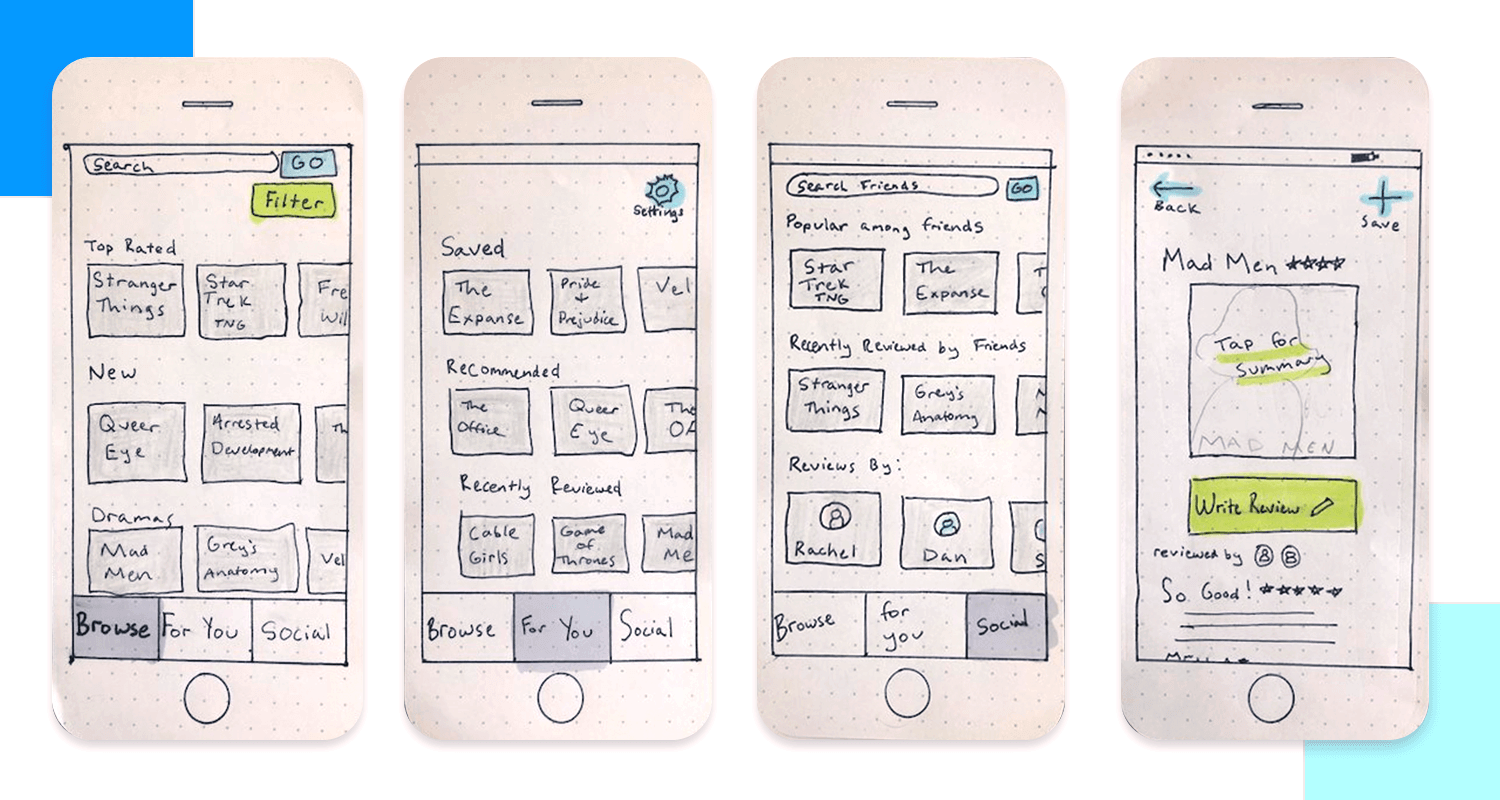 Search
GO
Filter
Top Rated
Stranger
Things
Star
Trek
TNG
Fre
Wil
New
Queer
Eye
Arrested
Development
Th
Dramas
Mad
Men
Grey's
Anatomy
Vel
Browse
For You
Social
Settings
Saved
The
Expanse
Pride
+
Prejudice
Vel
Recommended
The
Office
Queer
Eye
The
OA
Recently Reviewed
Cable
Girls
Game
of
Thrones
Mad
Me
Browse
For You
Social
Search Friends
GO
Popular among friends
Star
Trek
TNG
The
Expanse
T
Recently Reviewed by Friends
Stranger
Things
Grey's
Anatomy
Reviews By:
Rachel
Dan
S
Browse
for
you
Social
Back
Save
Mad Men ★★★★
Tap for
Summary
MAD MEN
Write Review
reviewed by
So Good! ★★★★★